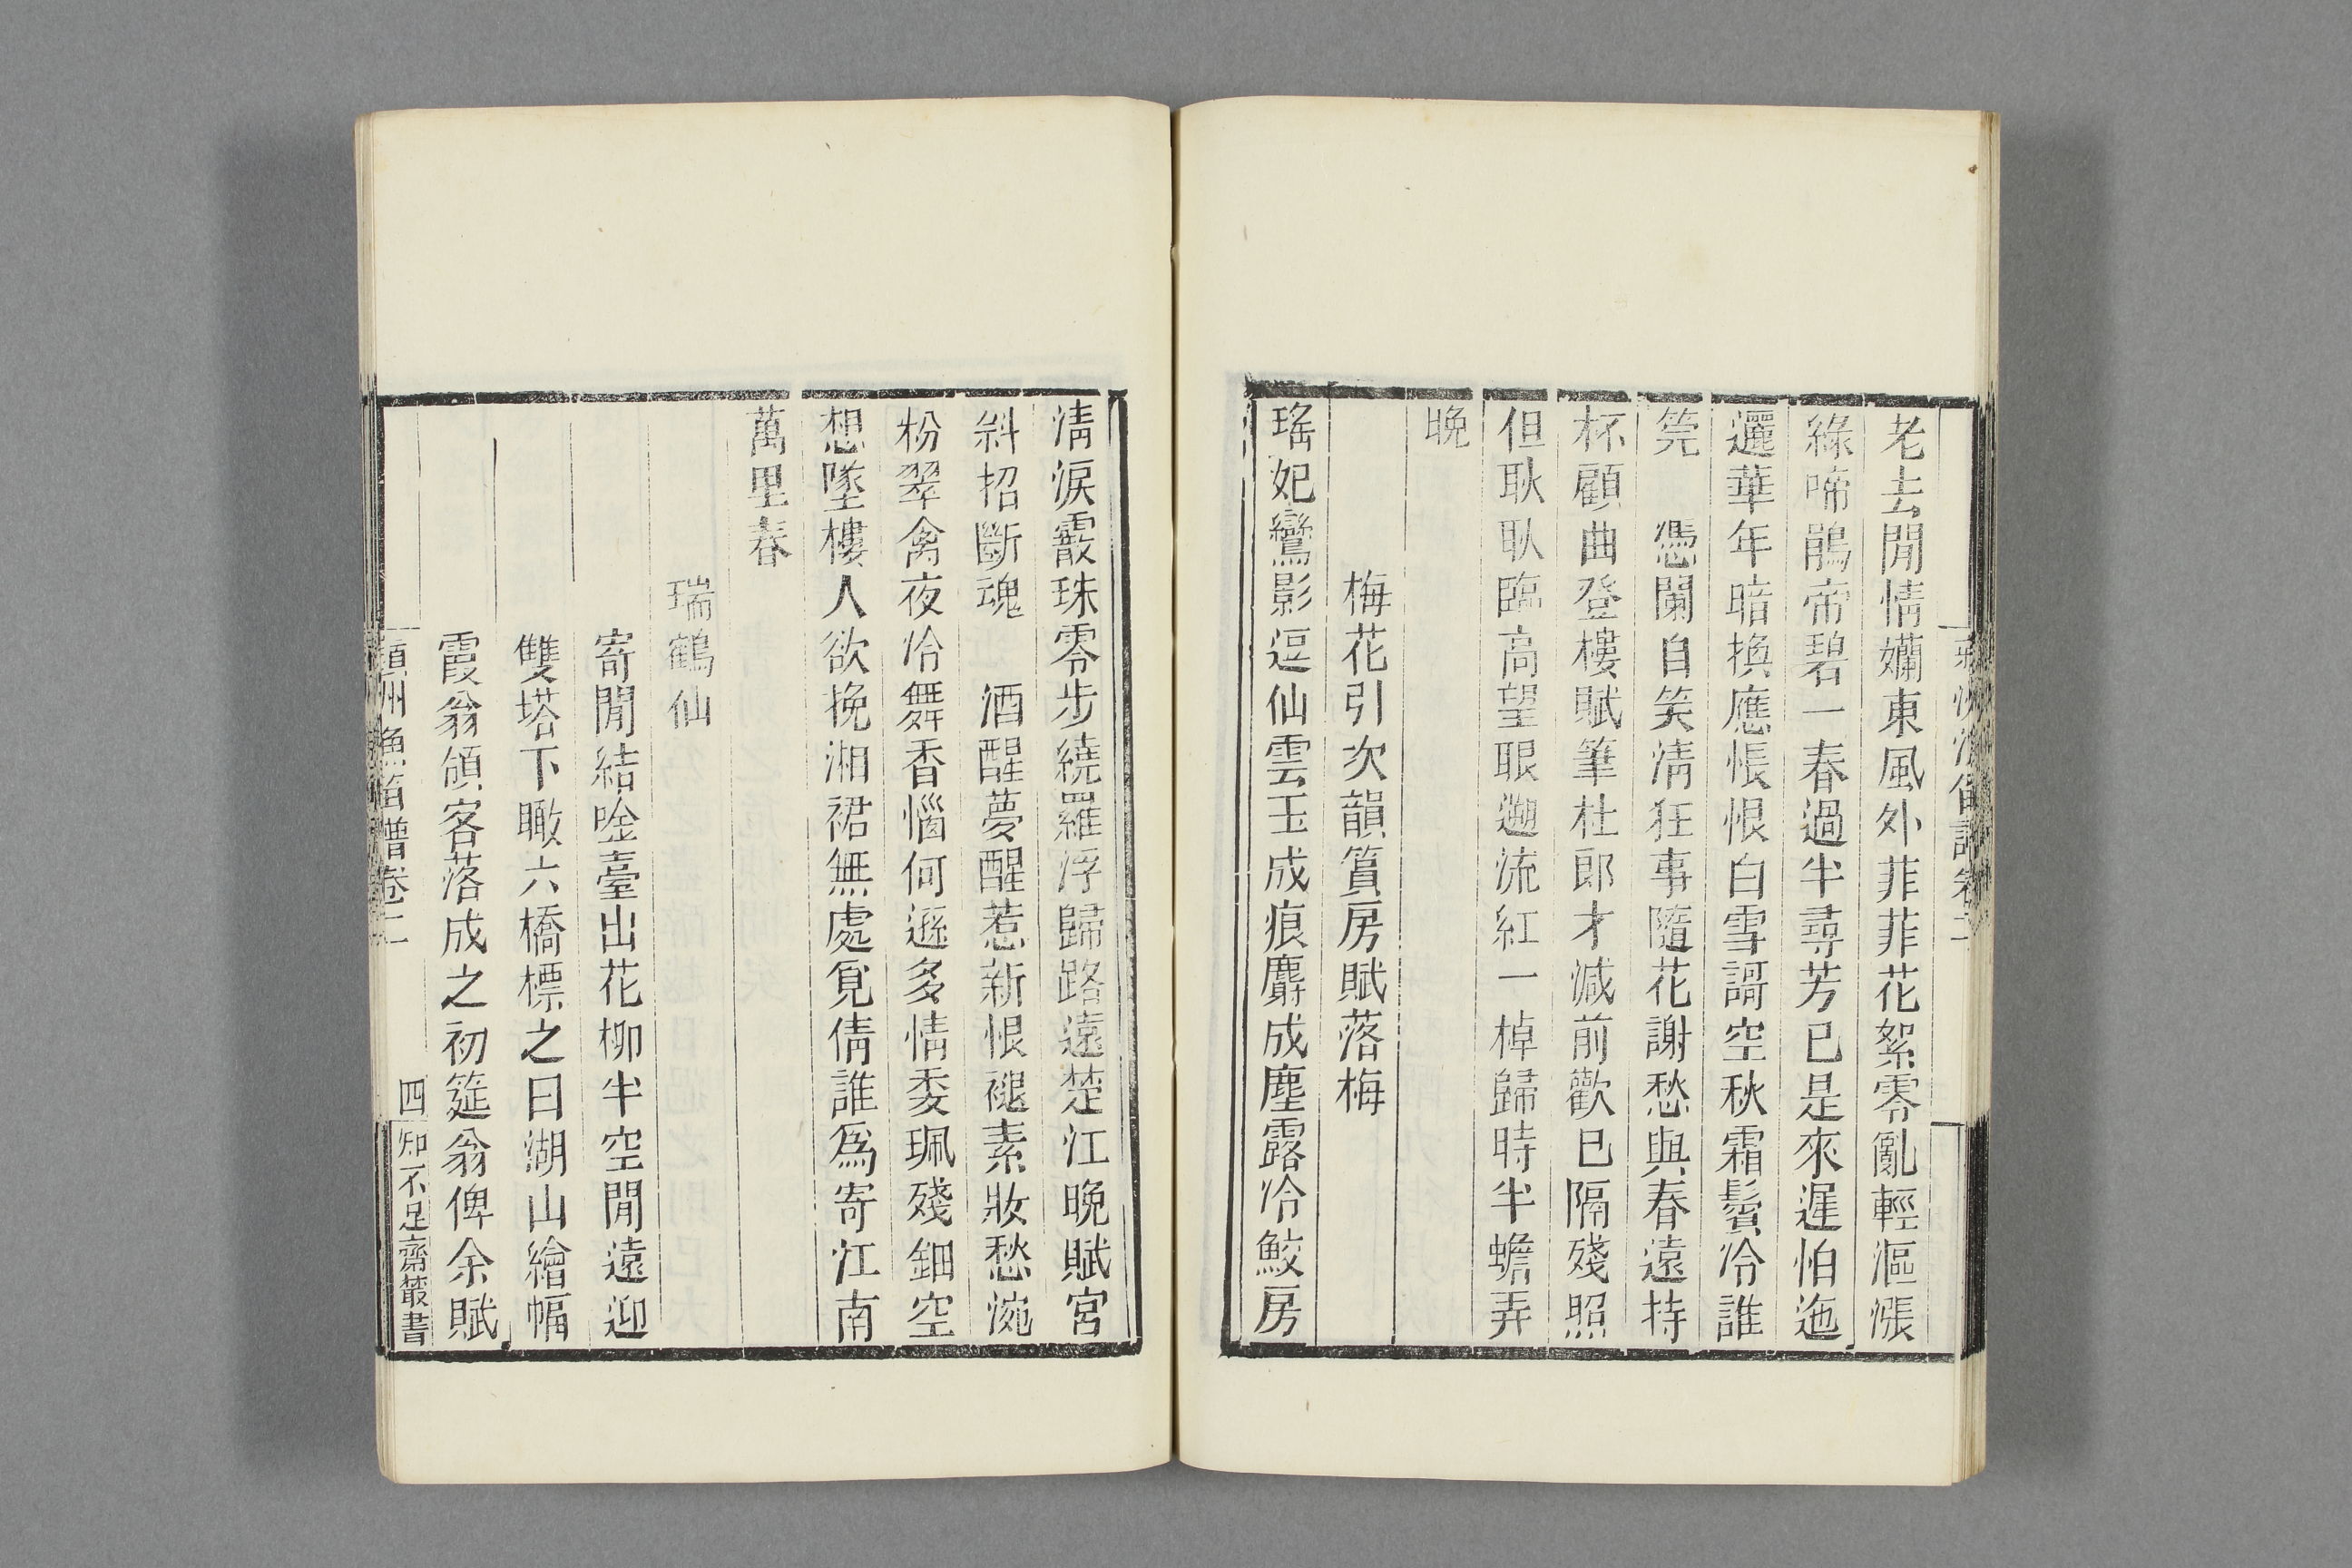 老去閒情嬾東風外菲菲花絮零亂輕漚漲
綠啼鵑帝碧一春過半尋芳已是來遲怕迤
邐華年暗換應悵恨白雪謌空秋霜鬢冷誰
筦　憑闌自笑清狂事隨花謝愁與春遠持
杯顧曲登樓賦筆杜郎才減前歡已隔殘照
但耿耿臨高望眼遡流紅一棹歸時半蟾弄
晚
梅花引次韻篔房賦落梅
瑤妃鸞影逗仙雲玉成痕麝成塵露冷鮫房
清淚霰珠零步繞羅浮歸路遠楚江晚賦宮
斜招斷魂　酒醒夢醒惹新恨褪素妝愁涴
粉翠禽夜冷舞香惱何遜多情委珮殘鈿空
想墜樓人欲挽湘裙無處覓倩誰爲寄江南
萬里春
瑞鶴仙
寄閒結唫臺出花柳半空閒遠迎
雙塔下瞰六橋標之曰湖山繪幅
霞翁領客落成之初筵翁俾余賦
蘋洲漁笛譜卷二
四
知不足齋叢書